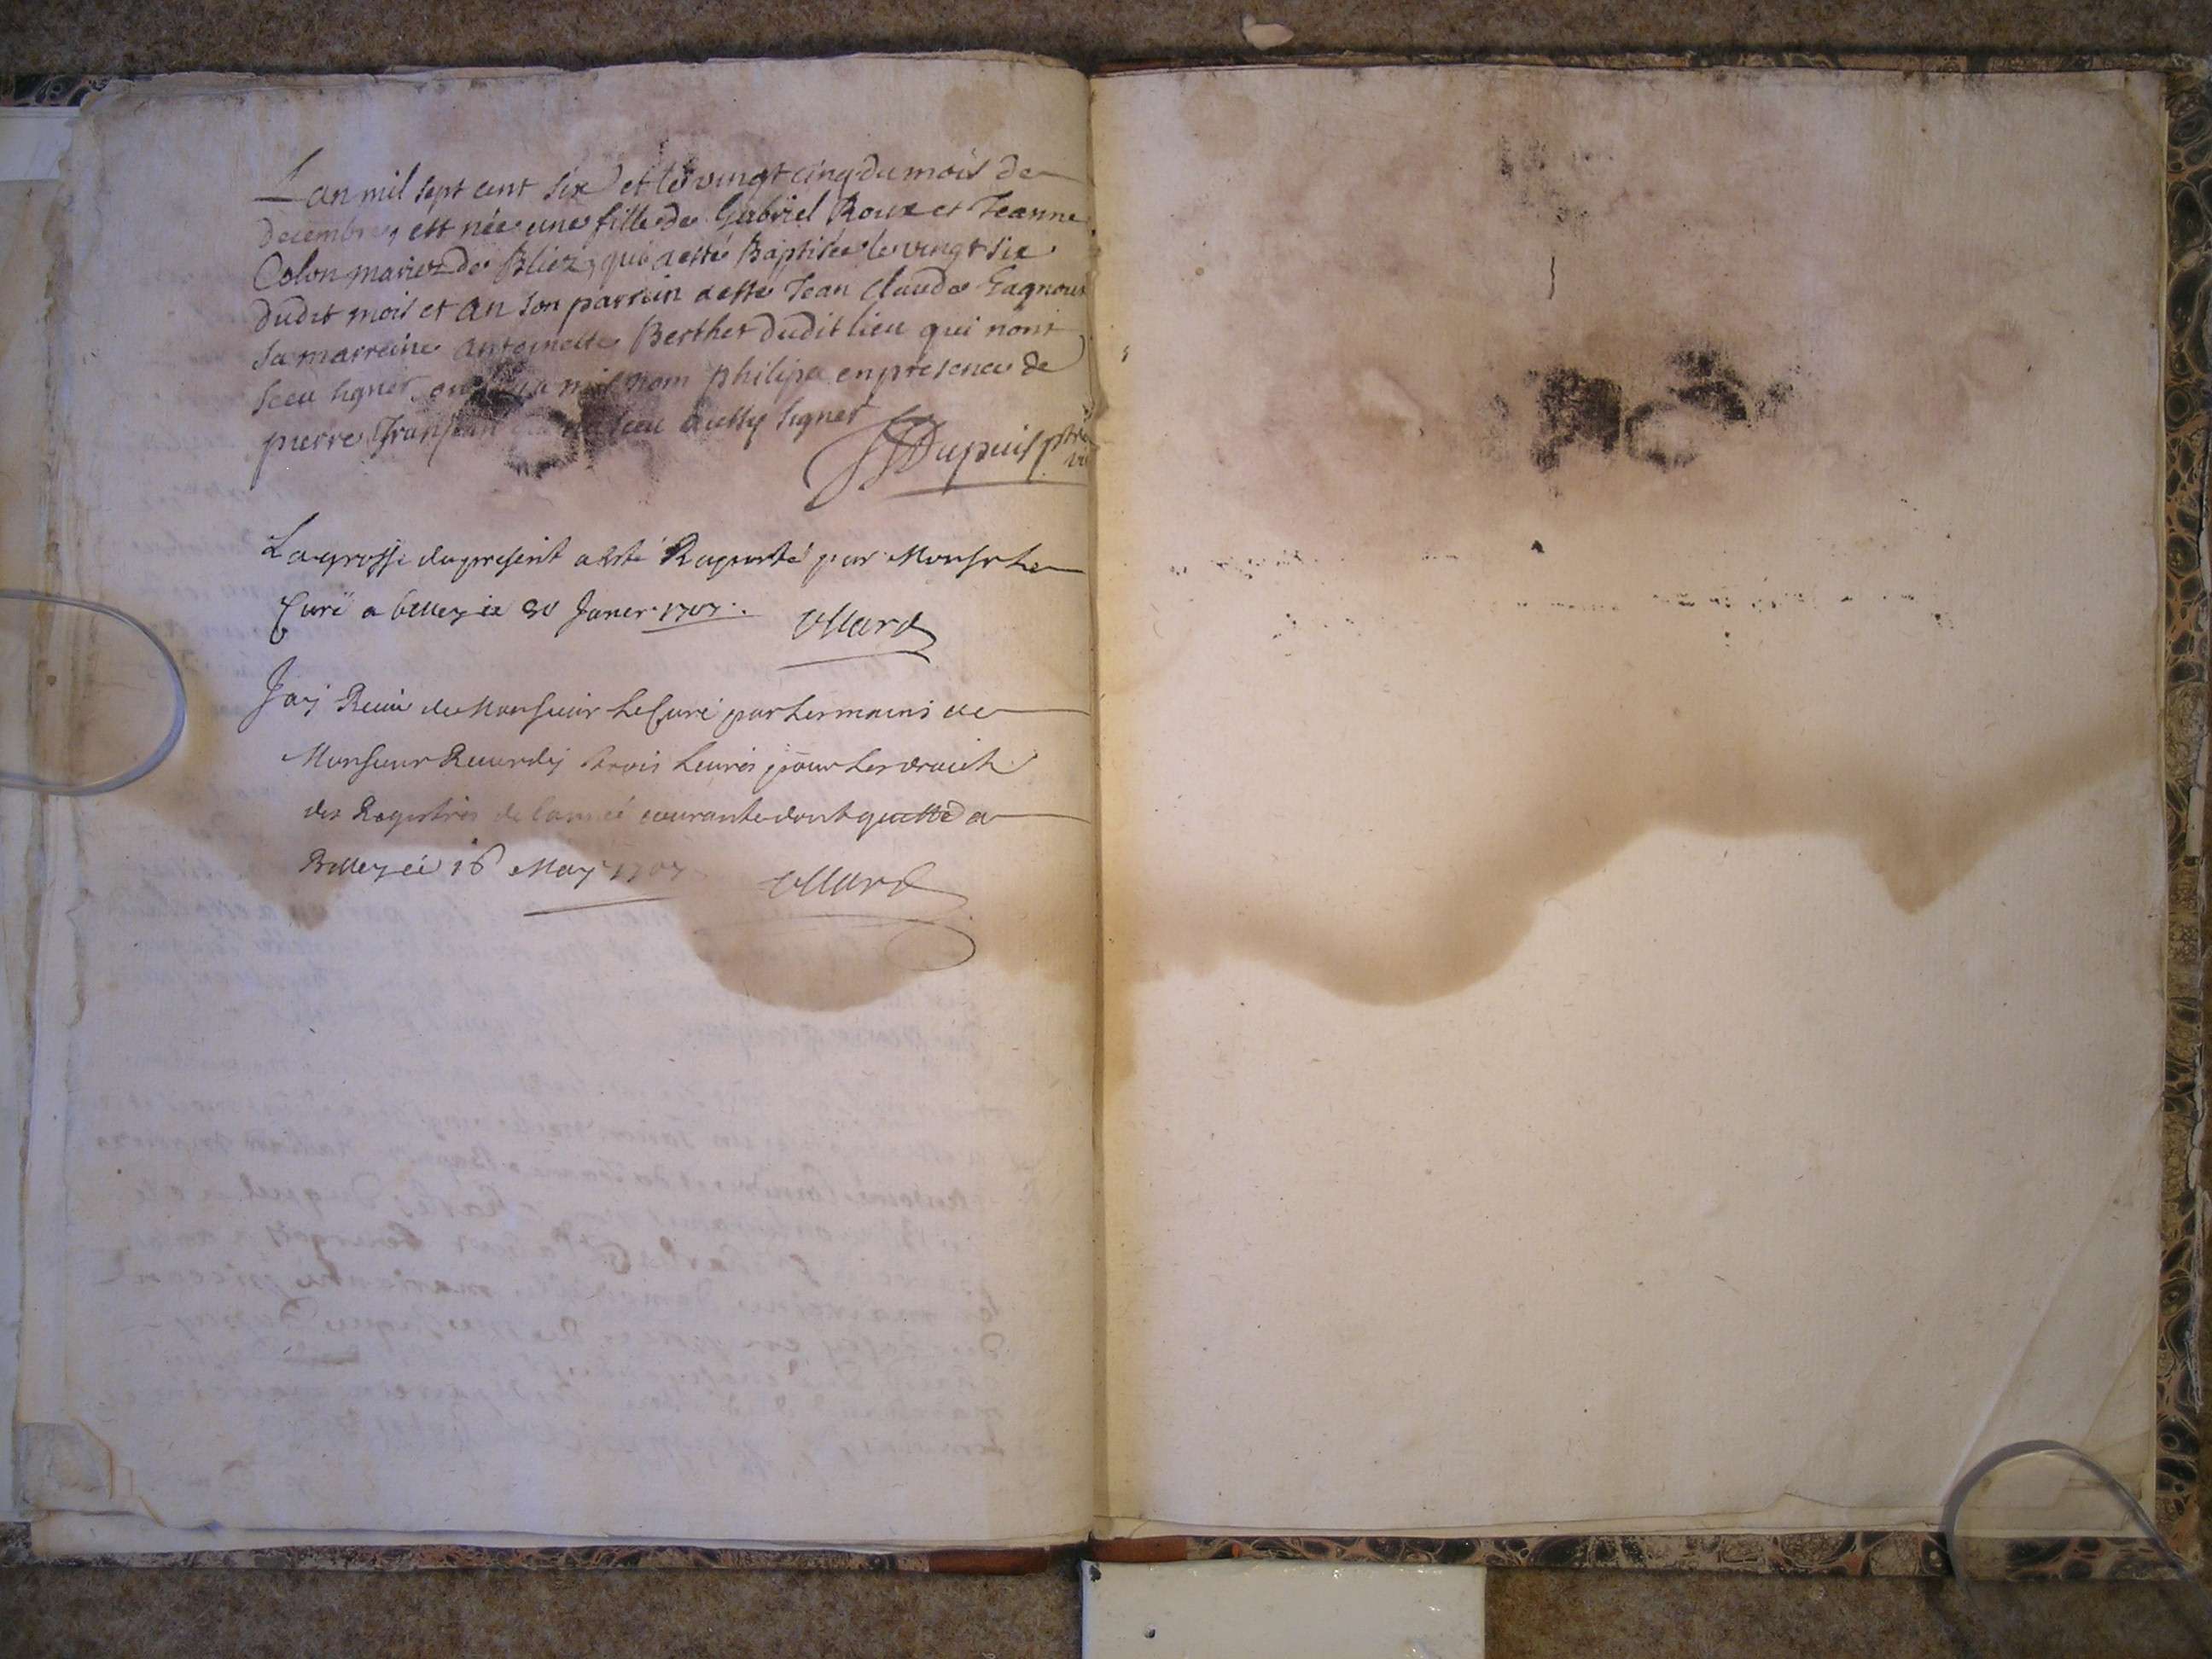 L an mil sept cent six et le vingt cinq du mois de
decembre, est née une fille de Gabriel Roux et Jeanne
Colon mariez de Bliez, qui a esté Baptisée le vingt six
dudit mois et an son parrein a este Jean Claude Gagnoux
sa marreine antoinette Berthet dudit lieu qui nont
sceu signer on nom philipa en presence de
pierre sceu aussy signer
Dupuis ptre
La grosse du present a esté Raporté par Monsr Le
Curé a belley ce 30 Janer 1707.
Ullard
Jay Receu de Monsieur Le Curé par Les mains de
Monsieur trois Liures pour Les droicts
des Registres de lannée courante dont quitte a
Belley ce 16 May 1707
Ullard